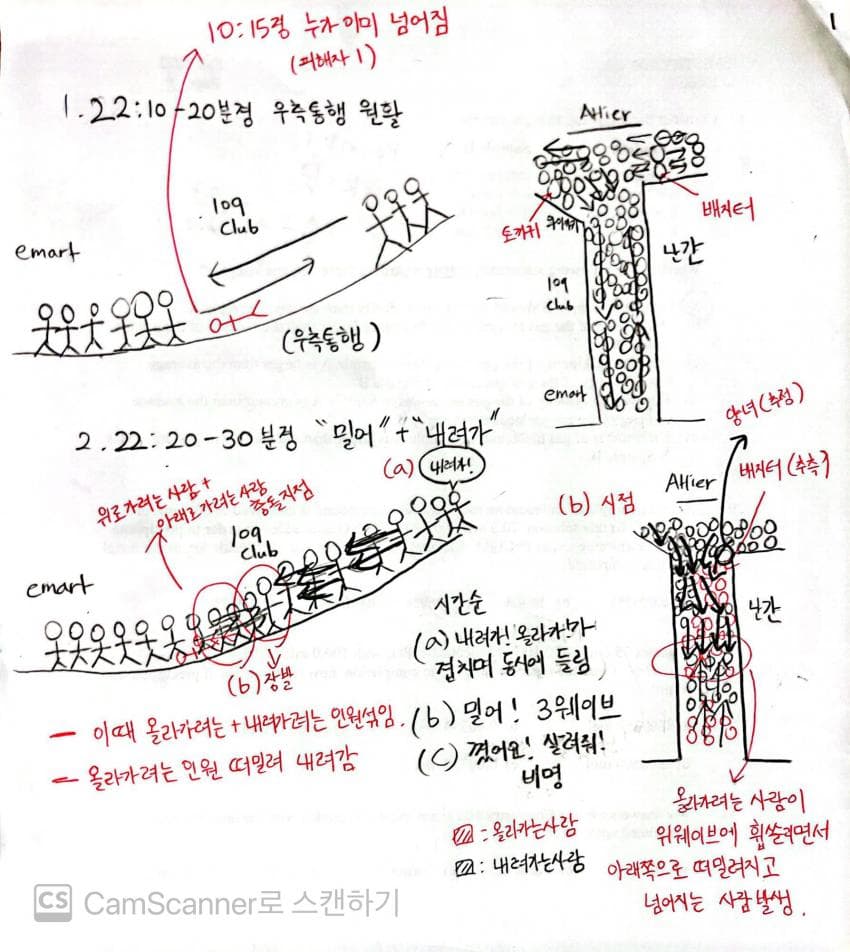 10:15경 누가 이미 넘어짐
(피해자 1)
1
1. 22:10-20분경 우측통행 원활
Atlier
109
Club
emart
(우측통행)
토끼귀
배지터
와이키키
109
Club
난간
emart
2. 22:20-30분경 "밀어" + "내려가"
(a) 내려가!
위로가려는사람 +
아래로가려는사람
충돌지점
109
Club
emart
(b) 장발
- 이때 올라가려는 + 내려가려는 인원섞임.
- 올라가려는 인원 떠밀려 내려감
시간순
(a) 내려가! 올라가!가
겹치며 동시에 들림
(b) 밀어! 3웨이브
(c) 꼈어요! 살려줘!
비명
앙녀(추정)
배지터(추측)
Atlier
(b) 시점
난간
올라가려는 사람이
위웨이브에 휩쓸리면서
아래쪽으로 떠밀려지고
넘어지는 사람발생.
: 올라가는사람
: 내려가는사람
CS CamScanner로 스캔하기